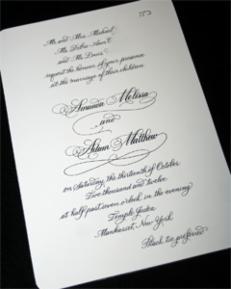 ב"ה
Mr. and Mrs. Michael
Ms. Debra Ann
and Mr. Louis
request the honour of your presence
at the marriage of their children
Amanda Melissa
and
Adam Matthew
on Saturday, the thirteenth of October
Two thousand and twelve
at half past seven o'clock in the evening
Temple Judea
Manhasset, New York
Black tie preferred